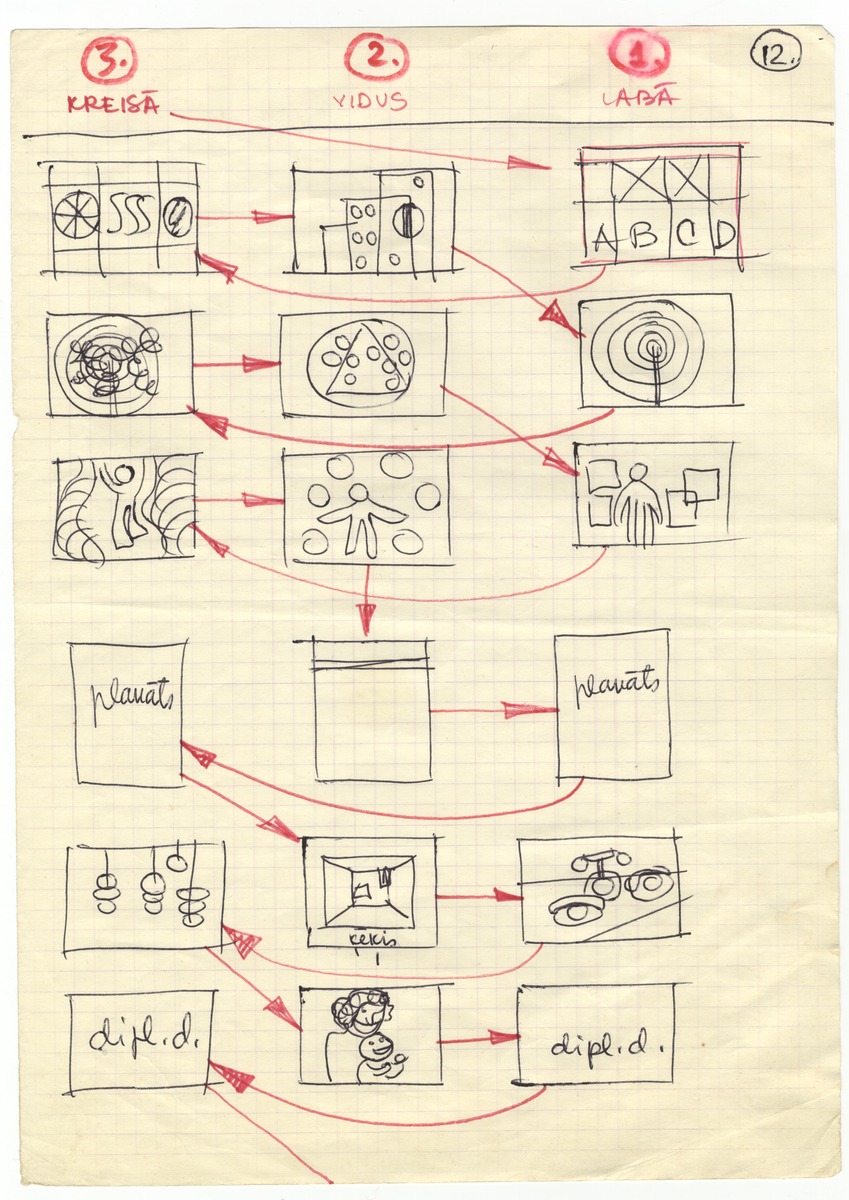 3. 2. 1. 12.
KREISĀ VIDUS LABĀ
A B C D
planāts planāts
ķēķis
dipl.d. dipl.d.